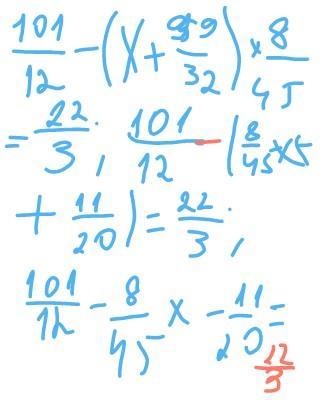 101/12 - (x + 99/32) × 8/45
= 22/3; 101/12 - (8/45 x
+ 11/20) = 22/3;
101/12 - 8/45 x - 11/20 = 22/3